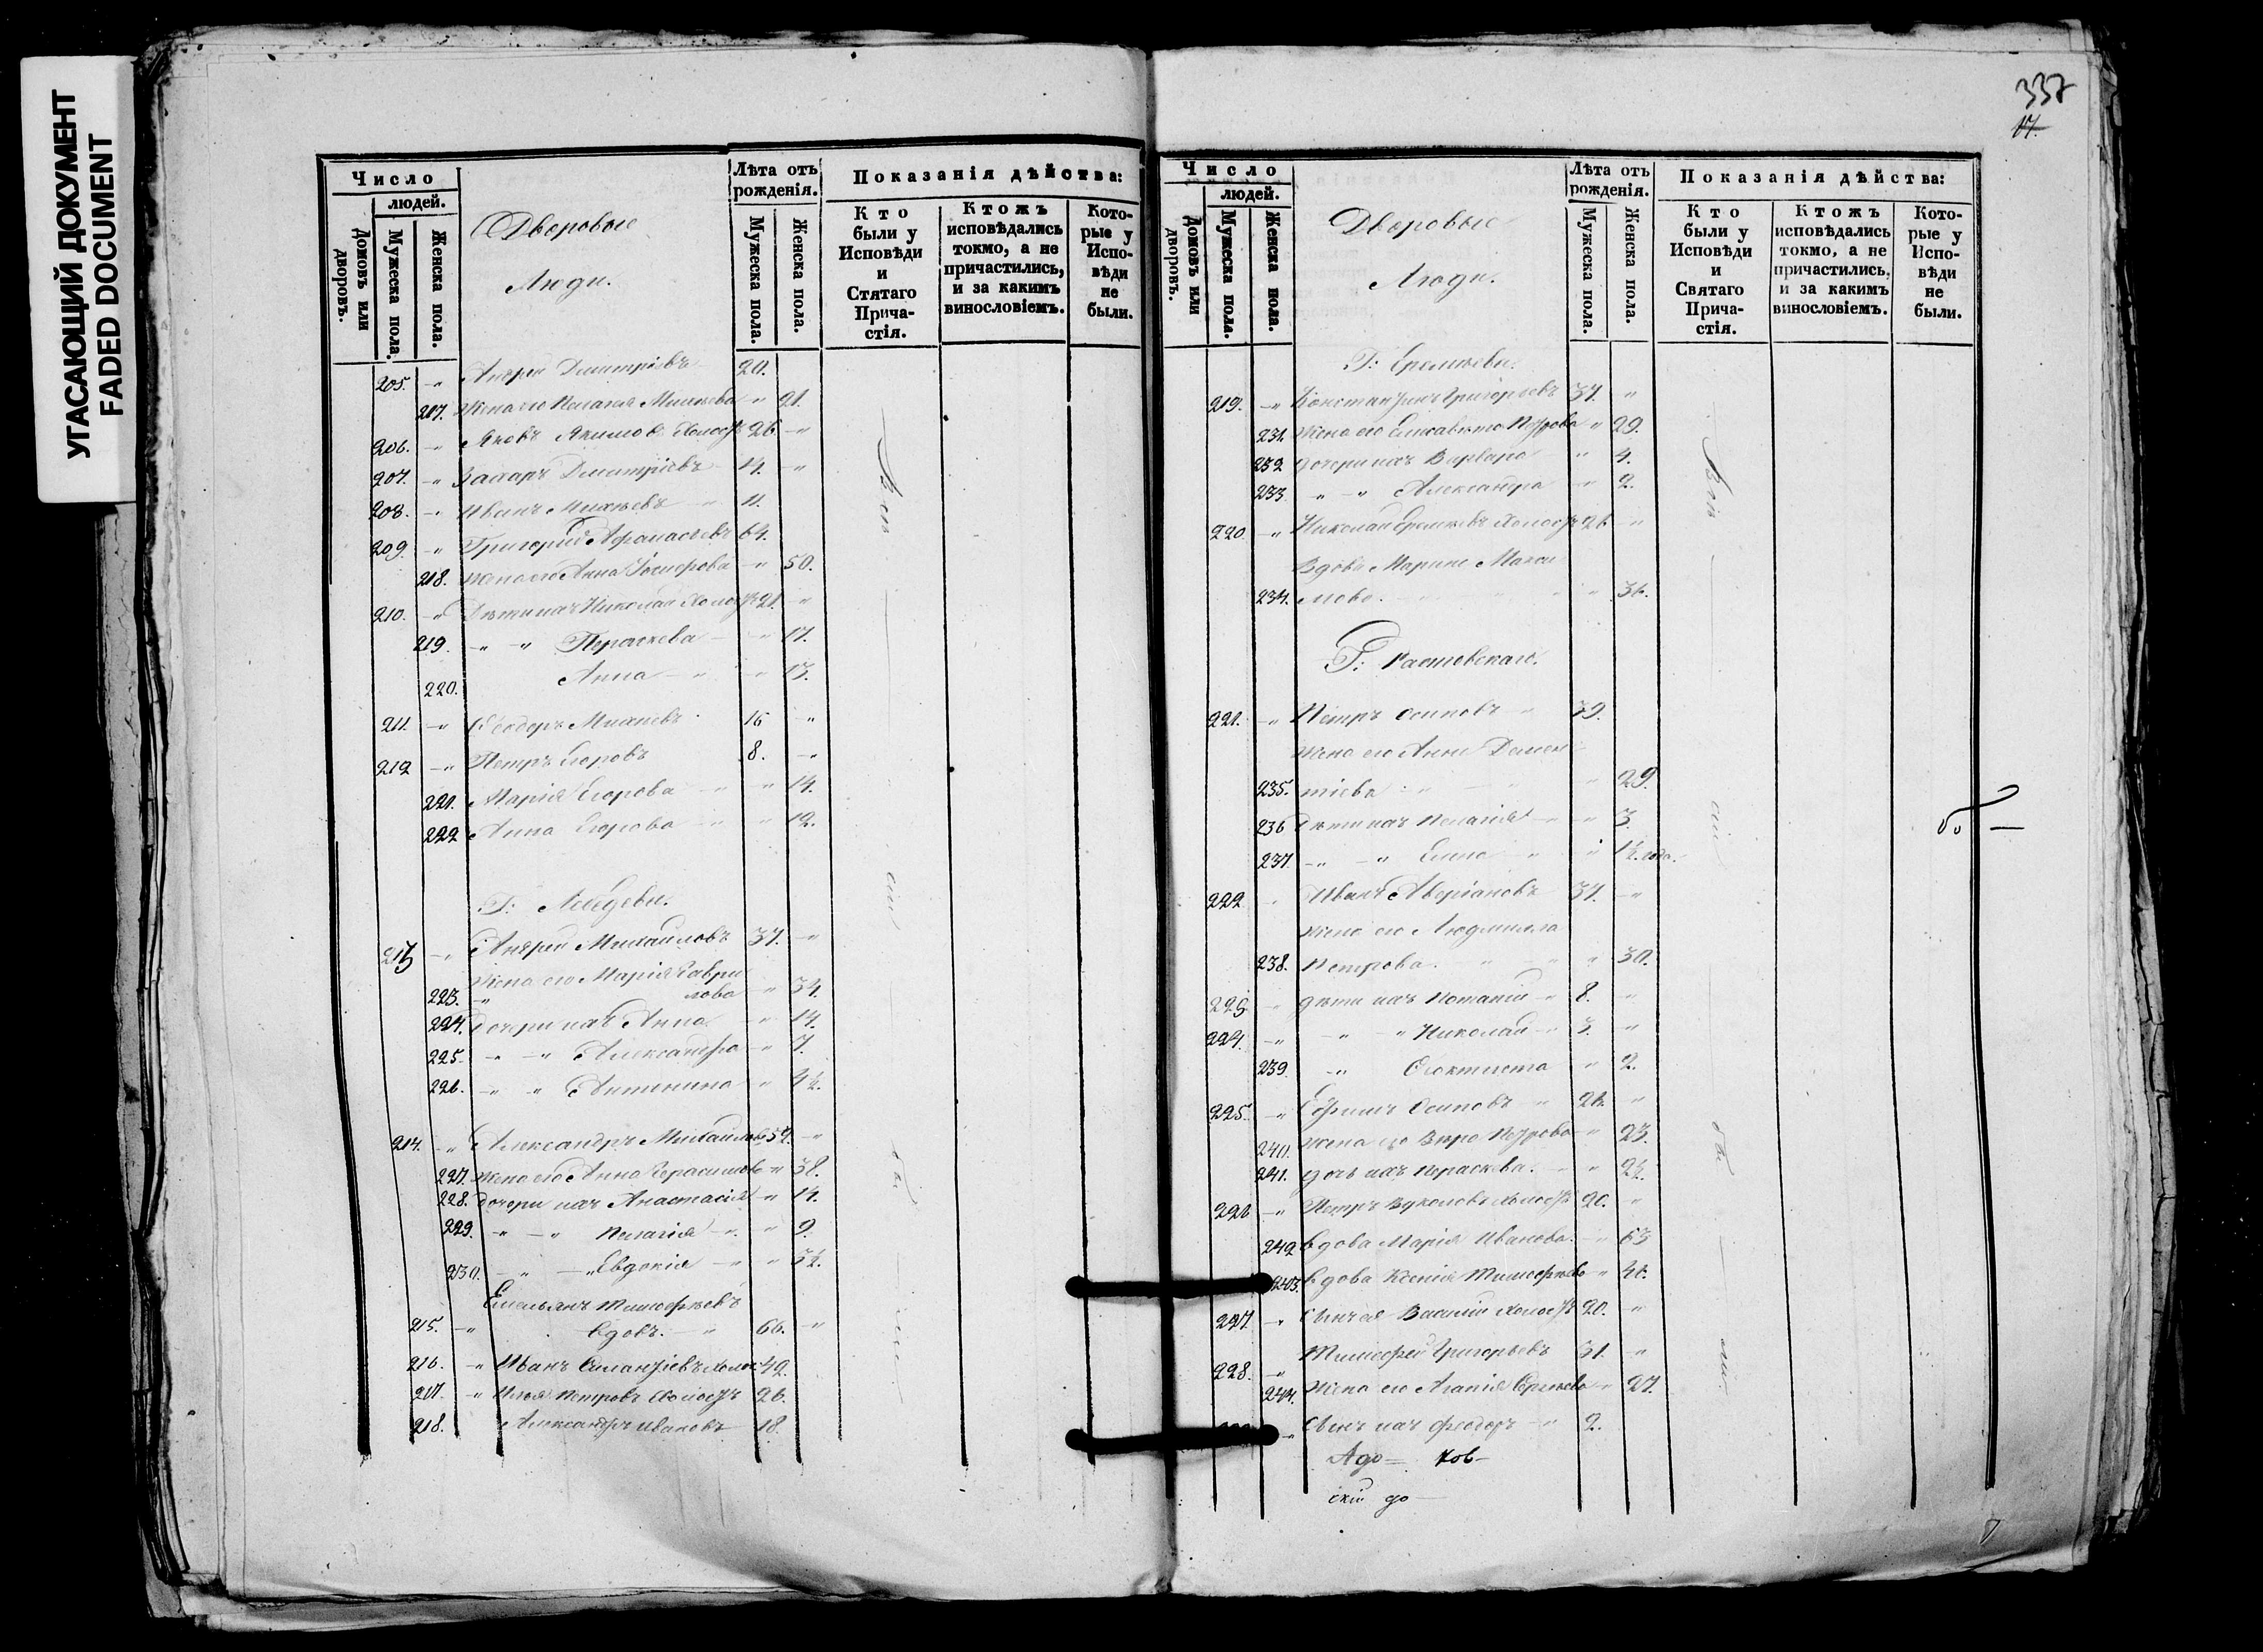 УГАСАЮЩИЙ ДОКУМЕНТ
FADED DOCUMENT
337
17.
Число
людей.
Домовъ или дворовъ.
Мужеска пола.
Женска пола.
Дворовые
Люди.
Лѣта отъ рожденія.
Мужеска пола.
Женска пола.
Показанія дѣйства:
Кто были у Исповѣди и Стятаго Прича-стія.
Ктожъ исповѣдались токмо, а не причастились, и за какимъ винословіемъ.
Кото-рые у Испо-вѣди не были.
205. -„ Андрей Дмитріевъ 20.
217. Жена его Пелагея Михѣева -„ 21.
206. -„ Яковъ Якимовъ Холостъ 26. -„
207. -„ Захаръ Дмитріевъ 14. -„
208. -„ Иванъ Михѣевъ -„ 11.
209. -„ Григорій Афанасьевъ 64.
218. Жена его Анна -„ 50.
210. -„ Дѣти ихъ Николай Холостъ 21. -„
219. -„ -„ Параскева -„ 17.
220. Анна -„ -„ 13.
211. -„ Ѳеодоръ Михѣевъ 16 -„
212 -„ Петръ Егоровъ 8. -„
221. Марія Егорова -„ „ 14.
222 Анна Егорова -„ „ 12.
Г: Лебедевы.
213 -„ Андрей Михайловъ 37. -„
Жена его Марія Гаври
223. -„ лова „ 34.
224. Дочери ихъ Анна -„ 14.
225. -„ -„ Александра -„ 7.
226. -„ „ Антонина „ 4½.
214. -„ Александръ Михайловъ 52. -„
227. Жена его Анна Герасимова -„ 38.
228. Дочери ихъ Анастасія -„ 14.
229. -„ -„ Пелагія -„ „ 9.
230. -„ -„ Евдокія -„ „ 3½.
Емельянъ Тимофѣевъ
215. -„ Вдовъ. -„ 66. -„
216. -„ Иванъ Холос 49.
217. „ Илья Петровъ Холостъ 26.
218. Александръ Ивановъ 18.
Всѣ
сіи
бы
ли
Число
людей.
Домовъ или дворовъ.
Мужеска пола.
Женска пола.
Дворовые
Люди.
Лѣта отъ рожденія.
Мужеска пола.
Женска пола.
Показанія дѣйства:
Кто были у Исповѣди и Святаго Прича-стія.
Ктожъ исповѣдались токмо, а не причастились, и за какимъ винословіемъ.
Кото-рые у Испо-вѣди не были.
219. -„ Константинъ Григорьевъ 37. „
231. Жена его Елисавета Петрова „ 29.
232 Дочери ихъ Варвара „ 4.
233 „ -„ Александра -„ 2.
220. -„ Николай Холостъ 26 „
Вдова Марина Макси
234. мова. „ 36.
221. -„ Петръ Осиповъ -„ 39.
Жена его Анна Демен
235. тіева „ 29.
236 Дѣти ихъ Пелагія -„ 3.
237. -„ -„ Елена „ „ 1½ года.
222 Иванъ Аверіановъ 37. -„
Жена его Людмилла
238. Петрова. „ 30.
223 -„ Дѣти ихъ Потапій -„ 8. „
224. -„ -„ „ Николай -„ 3. „
239 -„ Ѳеоктиста „ 2.
225. -„ Ефимъ Осиповъ „ 26. „
240. Жена его Вера Петрова -„ 23.
241. Дочь ихъ Параскева. -„ „ 2½.
226 -„ Петръ Вуколовъ Холостъ 20. „
242 Вдова Марія Иванова. -„ 63
243. Вдова Ксенія Тимофѣева „ 46.
227 -„ Сынъ ея Василій Холостъ 20. „
Тимофей Григорьевъ 31. -„
228. -„
244. Жена его Агапія Сергѣева -„ 27.
-„ Сынъ ихъ Феодоръ -„ 2.
Всѣ
сіи
бы
ли